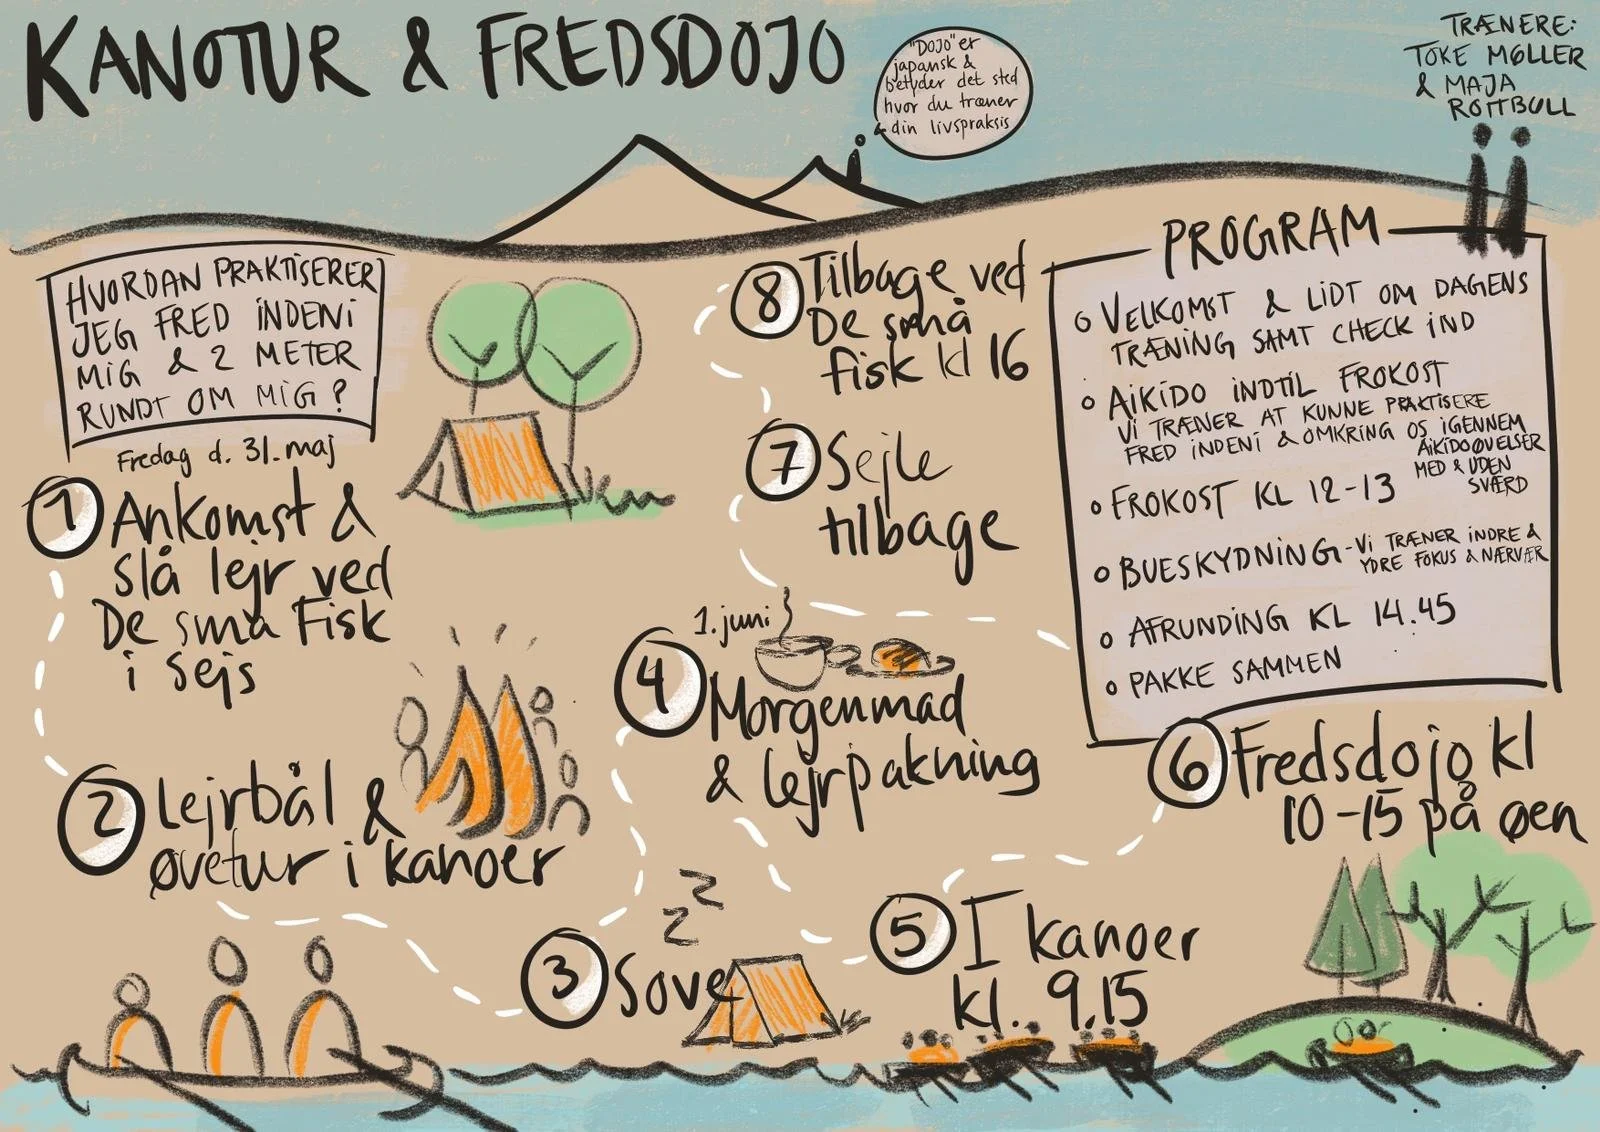 KANOTUR & FREDSDOJO
"DOJO" er
japansk &
betyder det sted
hvor du træner
din livspraksis
TRÆNERE:
TOKE MØLLER
& MAJA
ROTTBØLL
HVORDAN PRAKTISERER
JEG FRED INDENI
MIG & 2 METER
RUNDT OM MIG?
Fredag d. 31. maj
1 Ankomst &
slå lejr ved
De små Fisk
i Sejs
2 Lejrbål &
øvetur i kanoer
3 Sove
z z
1. juni
4 Morgenmad
& lejrpakning
5 I kanoer
kl. 9.15
6 Fredsdojo kl
10-15 på øen
PROGRAM
o VELKOMST & LIDT OM DAGENS
TRÆNING SAMT CHECK IND
o AIKIDO INDTIL FROKOST
VI TRÆNER AT KUNNE PRAKTISERE
FRED INDENI & OMKRING OS IGENNEM
AIKIDOØVELSER
MED & UDEN
SVÆRD
o FROKOST KL 12-13
o BUESKYDNING - VI TRÆNER INDRE &
YDRE FOKUS & NÆRVÆR
o AFRUNDING KL 14.45
o PAKKE SAMMEN
7 Sejle
tilbage
8 Tilbage ved
De små
fisk kl 16